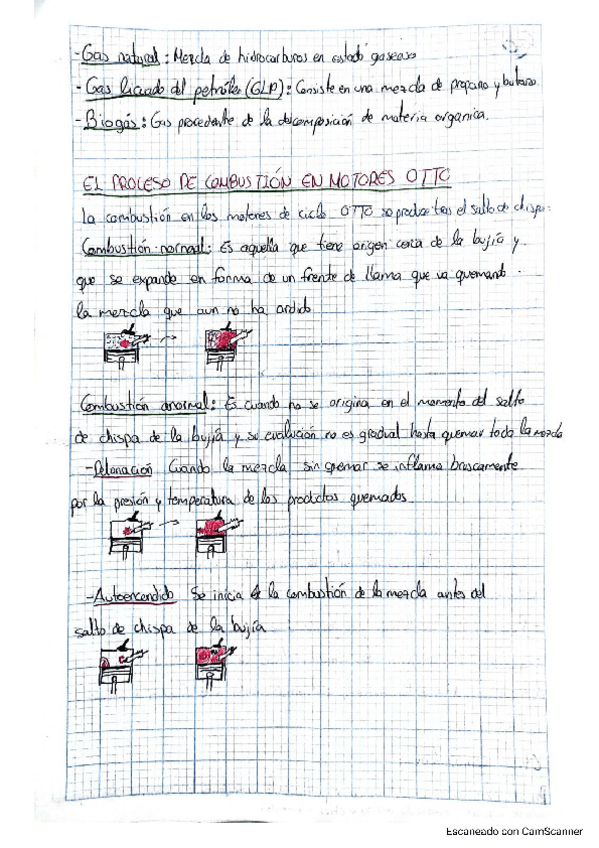 -Gas natural: Mezcla de hidrocarburos en estado gaseoso
-Gas licuado del petróleo (GLP): Consiste en una mezcla de propano y butano.
-Biogás: Gas procedente de la descomposición de materia organica.
EL PROCESO DE COMBUSTIÓN EN MOTORES OTTO
La combustión en los motores de ciclo OTTO se produce tras el salto de chispa.
Combustión normal: Es aquella que tiene origen cerca de la bujía y
que se expande en forma de un frente de llama que va quemando
la mezcla que aun no ha ardido
Combustión anormal: Es cuando no se origina en el momento del salto
de chispa de la bujía y su evolución no es gradual hasta quemar toda la mezcla
-Detonación Cuando la mezcla sin quemar se inflama bruscamente
por la presión y temperatura de los productos quemados
-Autoencendido Se inicia la combustión de la mezcla antes del
salto de chispa de la bujía
Escaneado con CamScanner